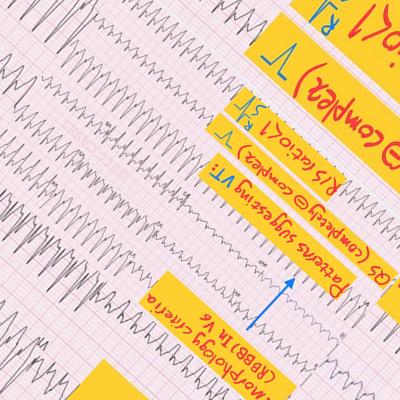 morphology criteria
(RBBB) In V6
Patterns suggesting VT:
QS (Completely ⊖ complex)
R/S ratio <1 R S
⊖ complex)
<1 R